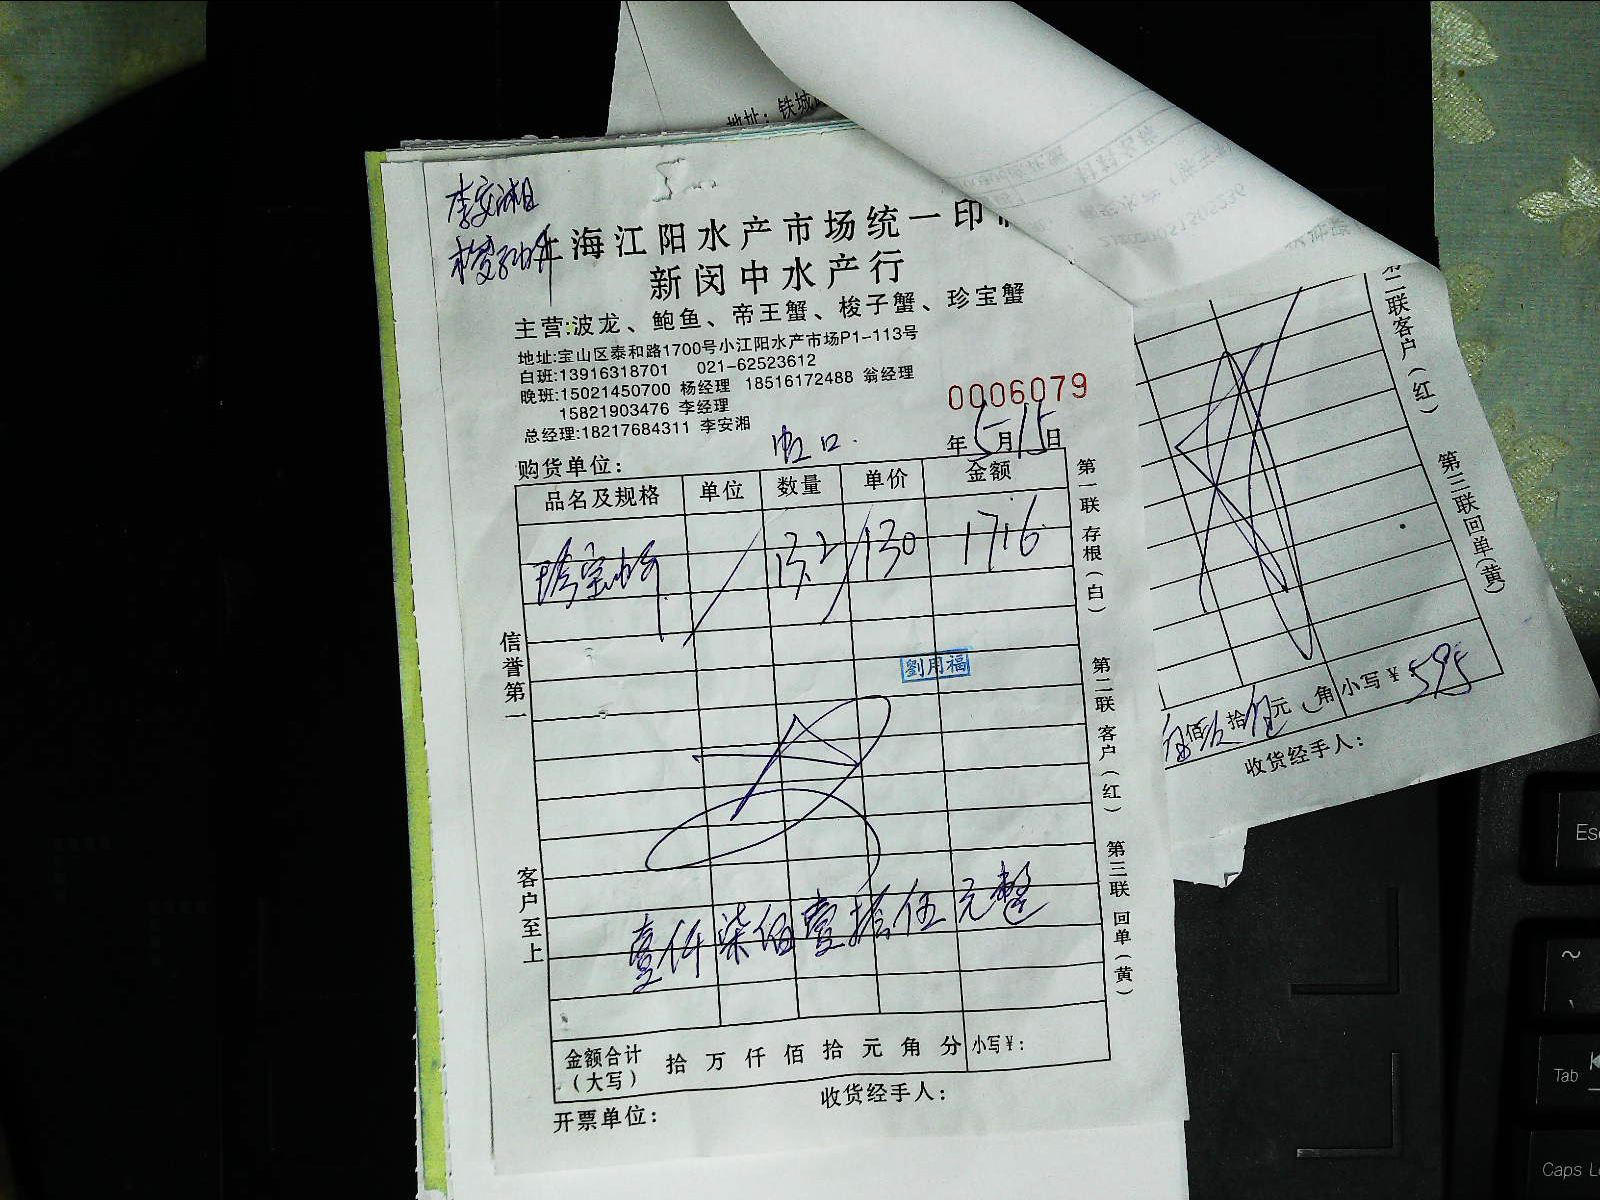 李安湘
上海江阳水产市场统一印制
新闵中水产行
主营:波龙、鲍鱼、帝王蟹、梭子蟹、珍宝蟹
地址:宝山区泰和路1700号小江阳水产市场P1-113号
白班:13916318701 021-62523612
晚班:15021450700 杨经理 18516172488 翁经理
15821903476 李经理
总经理:18217684311 李安湘
0006079
年5月15日
购货单位: 虹口.
品名及规格 单位 数量 单价 金额
珍宝蟹 / 13.2 / 130 1716
劉用福
壹仟柒佰壹拾伍元整
金额合计(大写) 拾万仟佰拾元角分 小写¥:
开票单位: 收货经手人:
信誉第一
客户至上
第一联 存根(白)
第二联 客户(红)
第三联 回单(黄)
地址: 铁城
第二联客户(红)
第三联回单(黄)
伍佰 拾 元 角 小写¥ 595
收货经手人:
Esc
~
Tab
Caps L